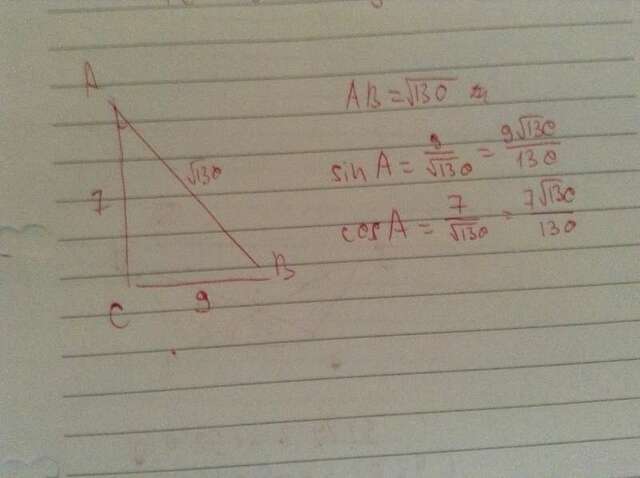 A
7
√130
B
C
9
AB = √130
sin A = 9/√130 = 9√130/130
cos A = 7/√130 = 7√130/130